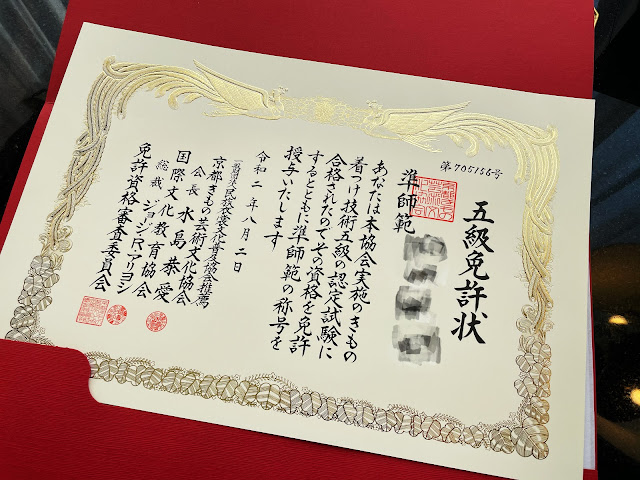 第705156号
五級免許状
準師範
あなたは本協会実施のきもの
着つけ技術五級の認定試験に
合格されたのでその資格を免許
するとともに準師範の称号を
授与いたします
令和二年八月二日
一般社団法人民族衣裳文化普及協会推薦
京都きもの芸術文化協会
会長 水島恭愛
国際文化教育協会
総裁 ジョージR.アリヨシ
免許資格審査委員会